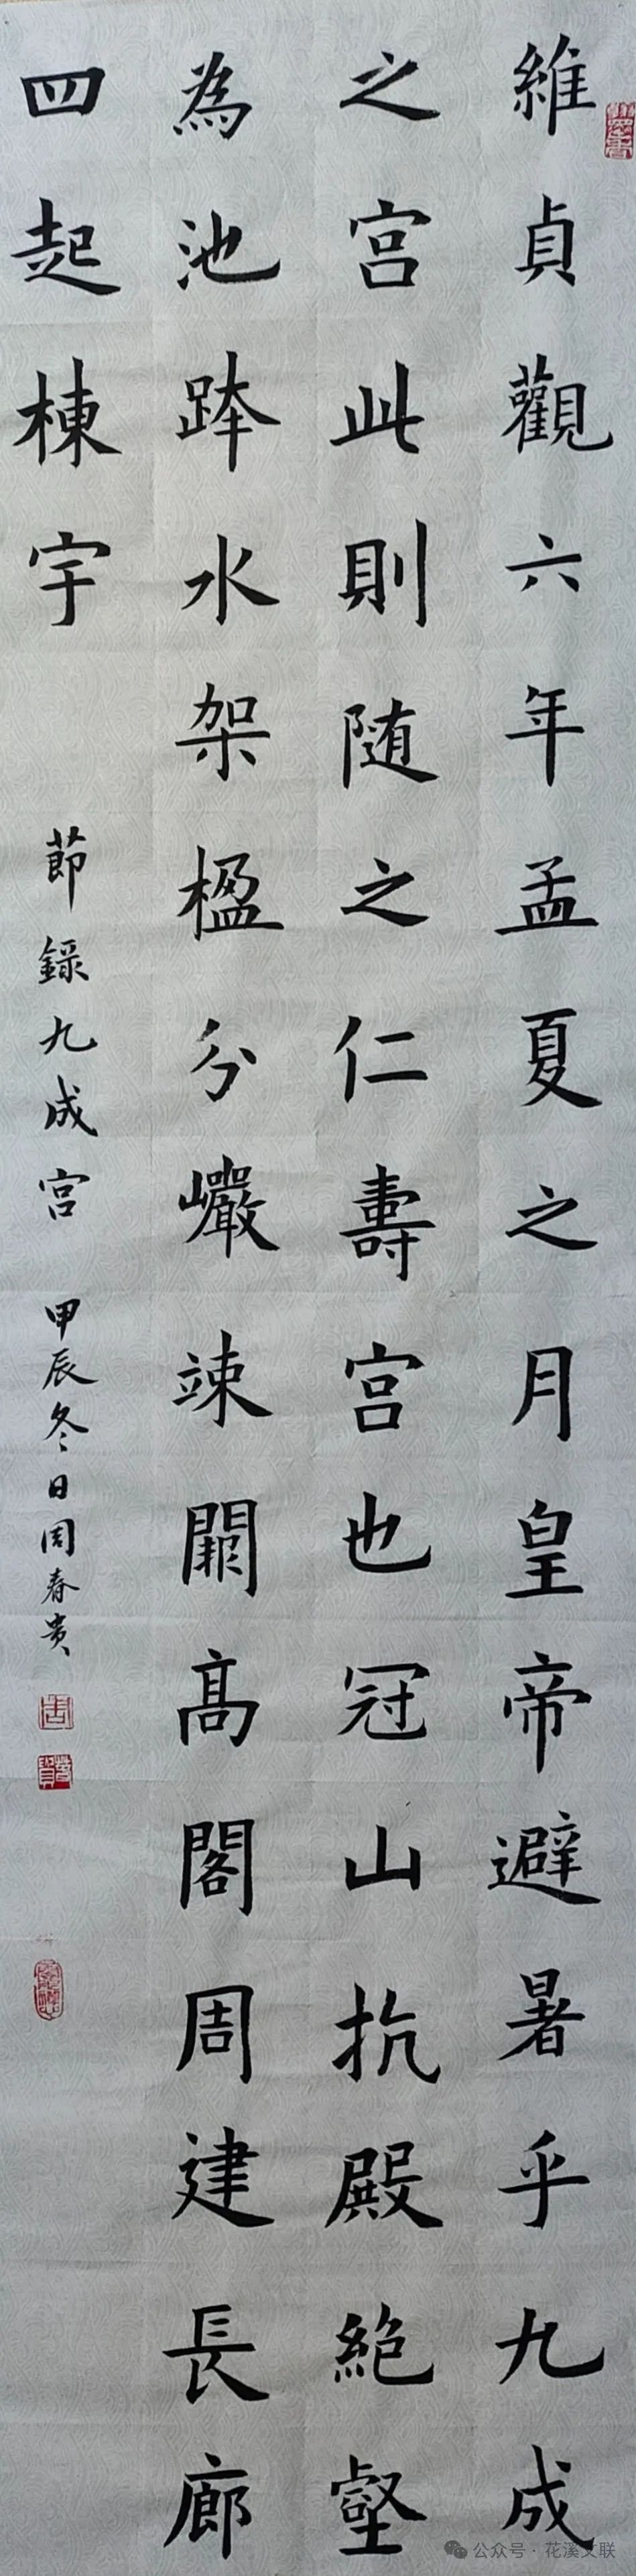 維貞觀六年孟夏之月皇帝避暑乎九成
之宫此則随之仁壽宫也冠山抗殿絶壑
為池跨水架楹分巖竦闕髙閣周建長廊
四起棟宇
節錄九成宫 甲辰冬日周春贵
公众号·花溪文联